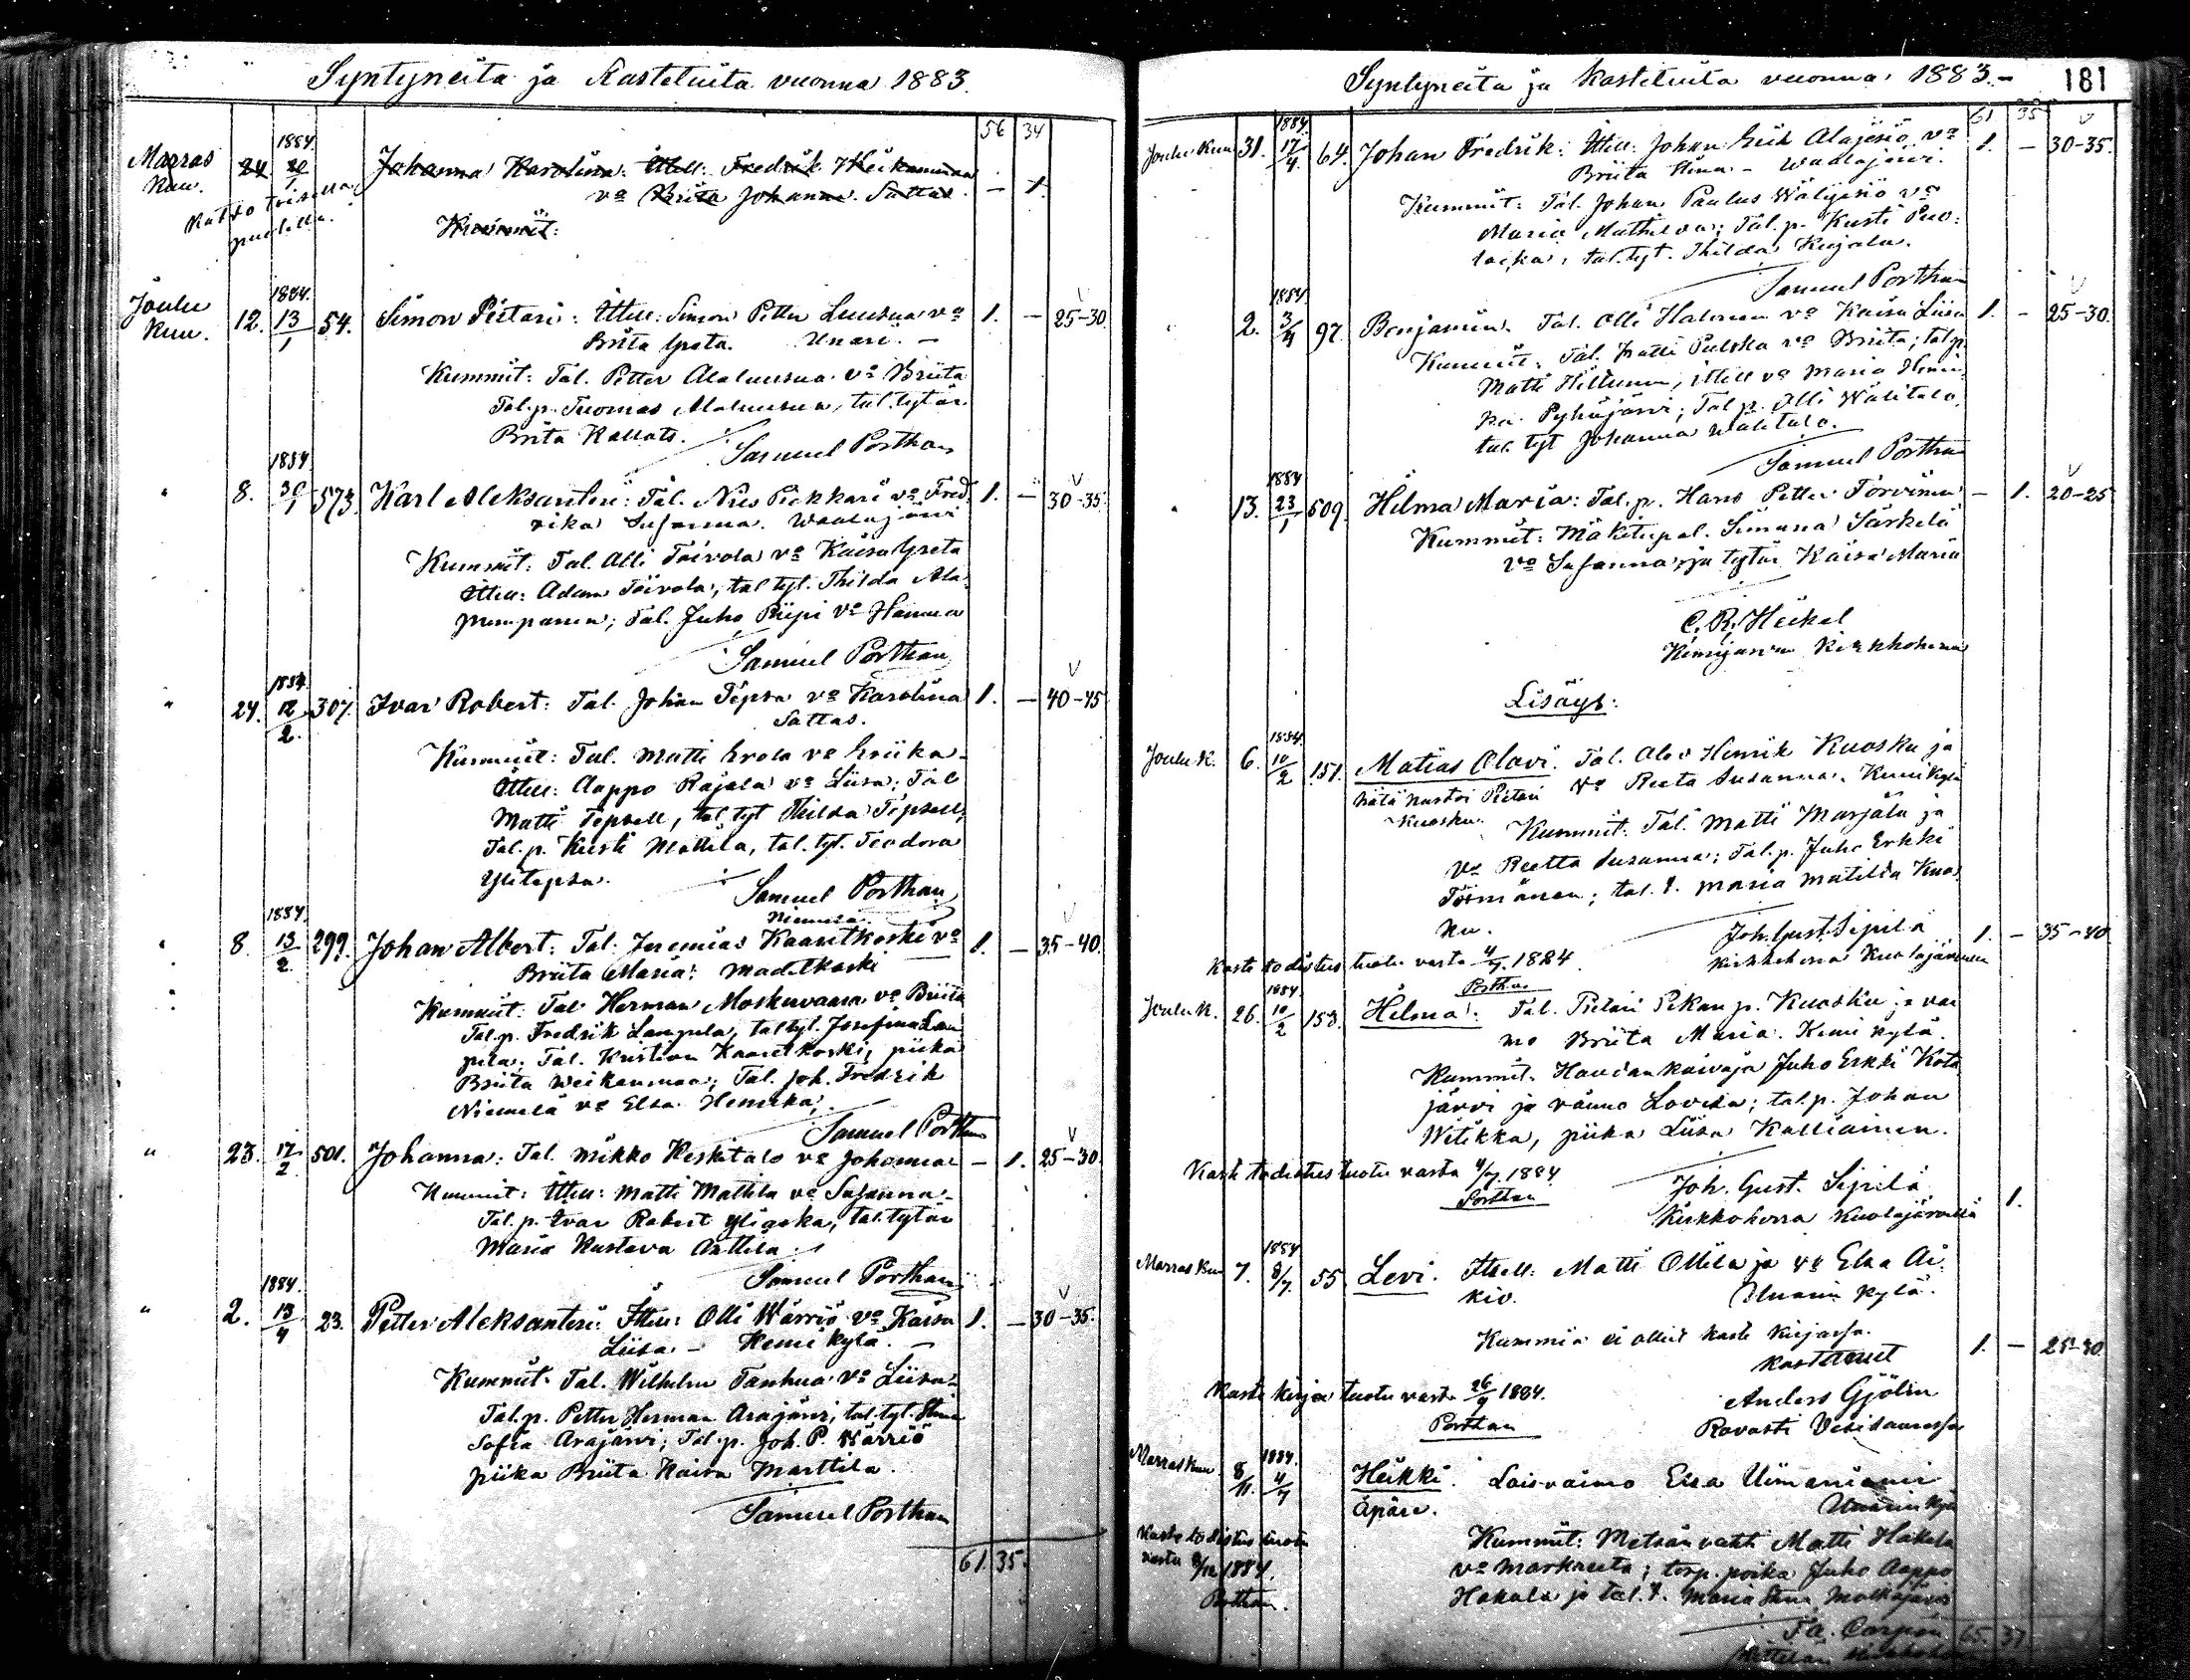 Syntyneita ja Kastetuita vuonna 1883.
56 34
Marras Kuu. 24. 1884 20/1 Johanna Karolina: Ittell. Fredrik
v:o Briita Johanna Sattas. — 1.
Katso toisella puolella.
Kummit:
Joulu Kuu. 12. 1884. 13/1 54. Simon Pietari: Ittell. Simon Petter Luusua v:o 1. — 25-30.
Briita Greta. Unari. —
Kummit: Tal. Petter Alaluusua v:o Briita
Tal.p. Tuomas Alaluusua, tal. tytär
Briita Kallats.
Samuel Porthan
" 8. 1884. 30/1 573. Karl Aleksanteri: Tal. Niis Piekkari v:o Fred- 1. — 30-35.
rika Susanna. Waalajärvi
Kummit: Tal. Olli Toivola v:o Kaisa Greta
Ittell: Adam Toivola, tal. tyt. Thilda Ala-
pumpanen; Tal. Juho Piipi v:o Hanna
Samuel Porthan
" 24. 1884. 12/2 307. Ivar Robert: Tal. Johan Tepsa v:o Karolina 1. — 40-45
Sattas.
Kummit: Tal. Matti Erola v:o Eriika
Ittell: Aappo Rajala v:o Liisa; Tal
Matti Tepsell, tal. tyt Thilda Tepsell,
Tal. p. Kusti Mattila, tal. tyt. Teodora
Ylitepsa.
Samuel Porthan
Niemelä
" 8. 1884. 13/2 299. Johan Albert: Tal. Jeremias Kaaretkoski v:o 1. — 35-40.
Briita Maria: Madetkoski
Kummit: Tal Herman Moskuvaara v:o Briita
Tal. p. Fredrik Lampela, tal. tyt. Josefina Lam
pela; Tal. Kristian Kaaretkoski, piika
Briita Weikanmaa; Tal. Joh. Fredrik
Niemelä v:o Elsa Henrika.
Samuel Porthan
" 23. 17/2 501. Johanna: Tal. Mikko Keskitalo v:o Johanna — 1. 25-30.
Kummit: Ittell: Matti Mattila v:o Susanna
Tal. p. Ivar Robert Yligoka, tal. tytär
Maria Kustava Anttila
Samuel Porthan
" 2. 1884. 13/4 23. Petter Aleksanteri: Ittell: Olli Wärriö v:o Kaisa 1. — 30-35.
Liisa — Kemi kylä. —
Kummit: Tal. Wilhelm Tanhua v:o Liisa
Tal. p. Petter Herman Arajärvi, tal. tyt. Stina
Sofia Arajärvi; Tal. p. Joh. P. Wärriö
piika Briita Kaisa Marttila.
Samuel Porthan
61. 35.
Syntyneita ja kastetuita vuonna 1883.— 181
61 35
Joulu Kuu 31. 1884. 17/4 64. Johan Fredrik: Ittell: Johan Erik Alajesiö v:o 1. — 30-35.
Briita Stina — Waalajärvi.
Kummit: Tal. Johan Paulus Wälijesiö v:o
Maria Mathilda; Tal. p. Kusti Puo-
lakka, tal. tyt. Thilda Kujala.
Samuel Porthan
" 2. 1884. 3/4 97. Benjamin. Tal. Olli Halonen v:o Kaisa Liisa 1. — 25-30.
Kummit: Tal. Matti Pulska v:o Briita; tal. p.
Matti Hiltunen, ittell v:o Maria Henri-
ka Pyhäjärvi; Tal. p. Olli Wälitalo,
tal. tyt Johanna Wälitalo.
Samuel Porthan
" 13. 1884 23/1 609. Hilma Maria: Tal. p. Hans Petter Torvinen — 1. 20-25
Kummit: Mäkitupal. Simuna Särkelä
v:o Susanna, ja tytär Kaisa Maria
C. R. Heikel
Kemijärven Kirkkoherra
Lisäys:
Joulu K. 6. 1884. 10/2 151. Matias Olavi. Tal. Olov Henrik Kuosku ja
v:o Reeta Susanna. Kemi Kylä
Kummit: Tal. Matti Marjala ja
v:o Reetta Susanna; Tal. p. Juho Erkki
Törmänen; tal. t. Maria Matilda Kuos
ku.
Joh. Gust. Sipilä 1. — 35-40
Kaste todistus tuotu vasta 4/7. 1884 Kirkkoherra Kuolajärvellä
Porthan
Joulu K. 26. 1884. 10/2 153. Helma: Tal. Pietari Pekan p. Kuosku ja vai
mo Briita Maria. Kemi kylä.
Kummit: Haudankaivaja Juho Erkki Kota
järvi ja vaimo Lovisa; tal. p. Johan
Witikka, piika Liisa Kalliainen.
Kaste todistus tuotu vasta 4/7 1884
Porthan
Joh. Gust. Sipilä
Kirkkoherra Kuolajärvellä 1.
Marras Kuu 7. 1884 8/7 55 Levi. Ittell: Matti Ollila ja v:o Elsa Ai-
kio. Unarin kylä.
Kummia ei ollut kaste kirjassa.
kastetanut 1. — 25-30.
Kaste kirja tuotu vasta 26/9 1884.
Porthan
Anders Gjölin
Rovasti Vesisaaressa
Marras Kuu 8/11. 1884. 4/7 Heikki. Loisvaimo Elsa Uimaniemi
Äpäre. Unarin kylä
Kummit: Metsänvahti Matti Hakala
v:o Markreeta; torp. poika Juho Aappo
Hakala ja tal. t. Maria Stina Molkojärvi
Kaste todistus tuotu
vasta 1884.
Porthan.
65. 37